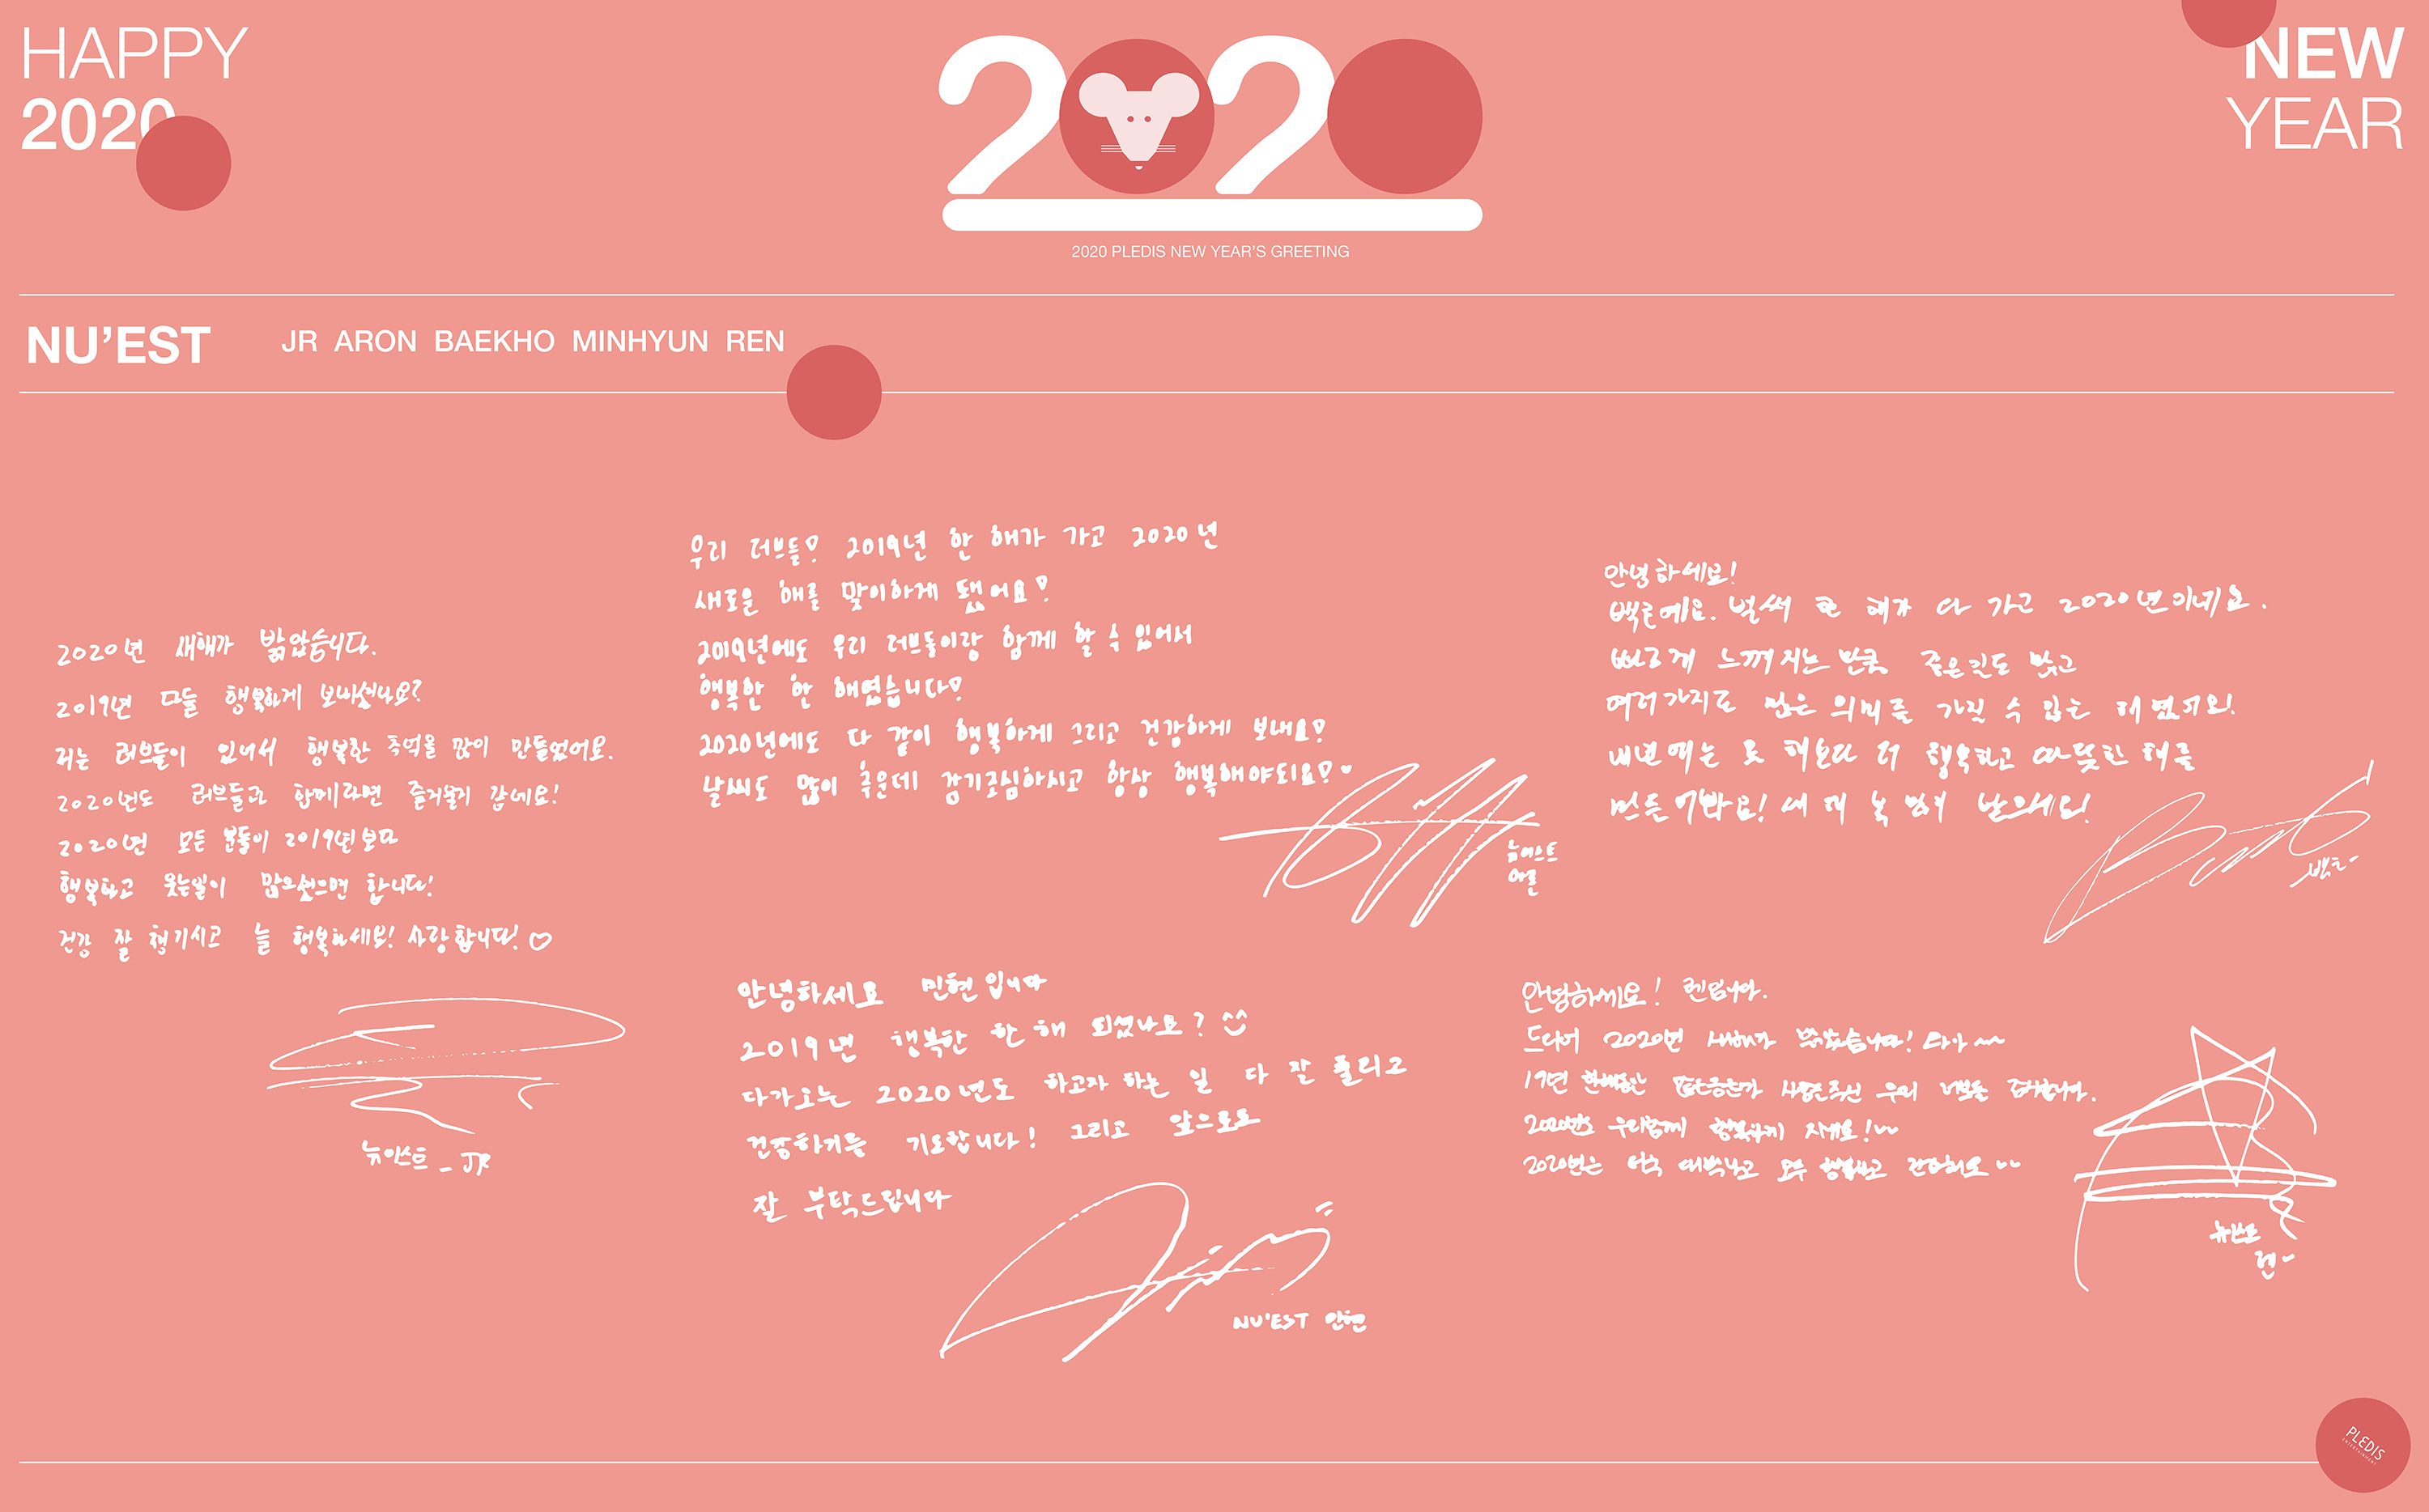 HAPPY
2020
2020
NEW
YEAR
2020 PLEDIS NEW YEAR'S GREETING
NU'EST JR ARON BAEKHO MINHYUN REN
2020년 새해가 밝았습니다.
2019년 다들 행복하게 보내셨나요?
저는 러브들이 있어서 행복한 추억을 많이 만들었어요.
2020년도 러브들과 함께라면 즐거울거 같네요!
2020년 모든 분들이 2019년보다
행복하고 웃는일이 많으셨으면 합니다!
건강 잘 챙기시고 늘 행복하세요! 사랑합니다!
뉴이스트_JR
우리 러브들! 2019년 한 해가 가고 2020년
새로운 해를 맞이하게 됐어요!
2019년에도 우리 러브들이랑 함께 할 수 있어서
행복한 한 해였습니다!
2020년에도 다 같이 행복하게 그리고 건강하게 보내요!
날씨도 많이 추운데 감기조심하시고 항상 행복해야되요!
뉴이스트
아론
안녕하세요!
백호예요. 벌써 한 해가 다 가고 2020년이네요.
빠르게 느껴지는 만큼 좋은일도 많고
여러가지로 많은 의미를 가질 수 있는 해였어요!
내년에는 또 해보다 더 행복하고 따뜻한 해를
만든어봐요! 새해 복 많이 받으세요!
백호
안녕하세요 민현입니다
2019년 행복한 한 해 되셨나요?
다가오는 2020년도 하고자 하는 일 다 잘 풀리고
건강하기를 기도합니다! 그리고 앞으로도
잘 부탁드립니다
NU'EST 민현
안녕하세요! 렌입니다.
드디어 2020년 새해가 밝았습니다!
19년 우리 러브들
2020년도 우리함께 행복하게 지내요!
2020년은 모두
렌
PLEDIS
ENTERTAINMENT